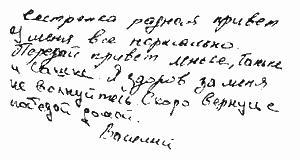 сестренка радная привет
у меня все нормально.
Передай привет Леньке, Таньке
и Сашке. Я здоров за меня
не волнуйтесь. Скоро вернусь с
победой домой.
Василий